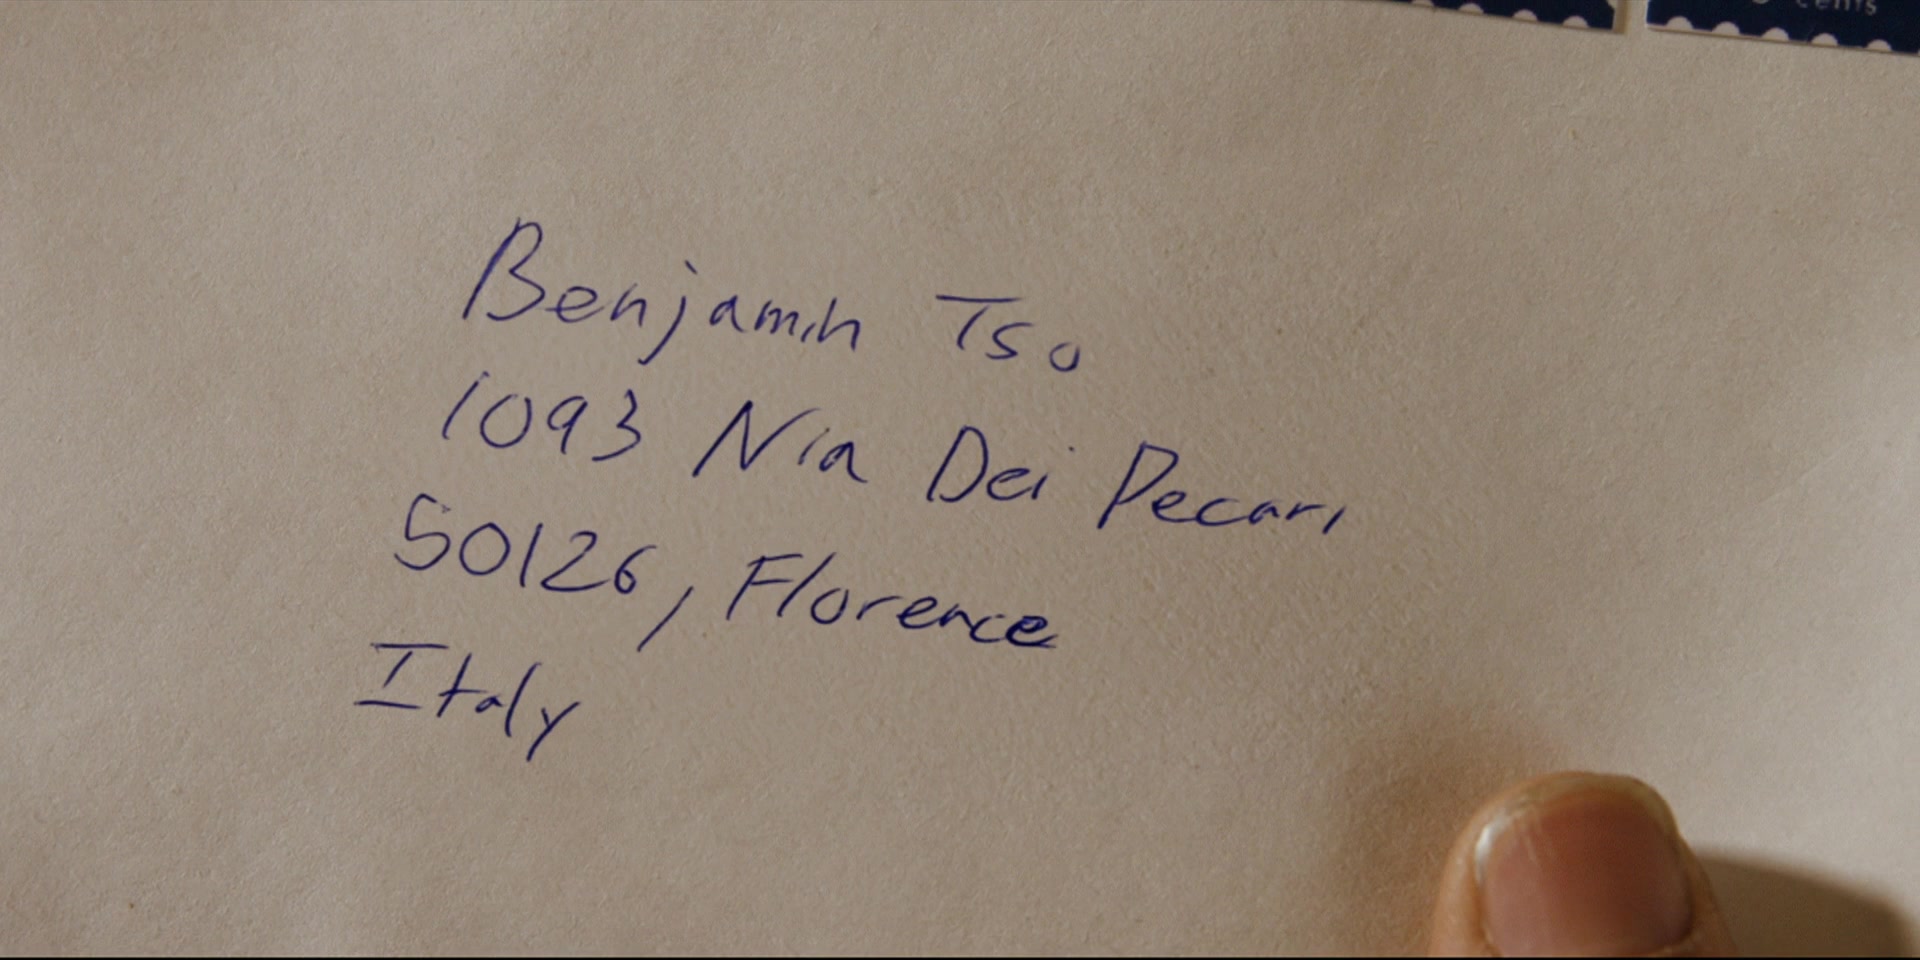 cents
Benjamin Tso
1093 Nia Dei Pecari
50126, Florence
Italy